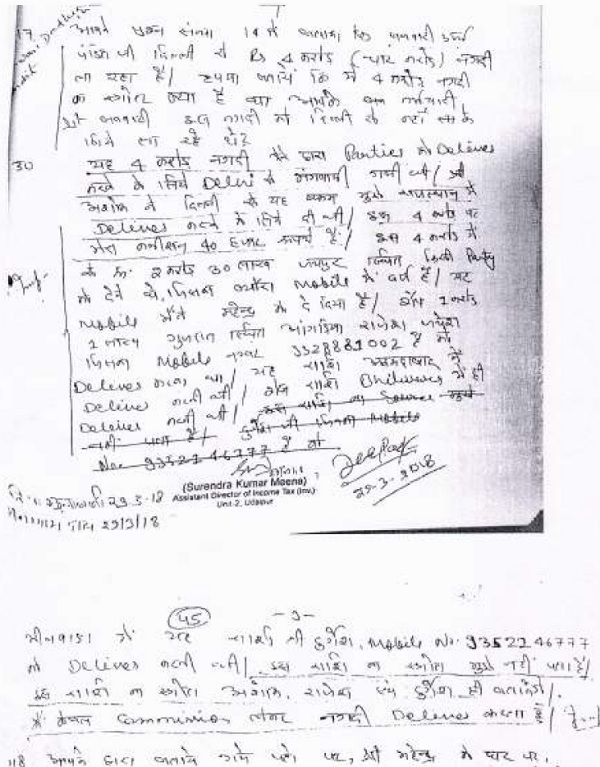 17 आपने प्रश्न संख्या 14 में बताया कि बनवारी उर्फ
पंडित जी दिल्ली से Rs 4 करोड़ (चार करोड़) नगदी
ला रहा है। कृपया बतायें कि ये 4 करोड़ नगदी
का स्त्रोत क्या है क्या आपके
श्री बनवारी इस नगदी को दिल्ली से
लिये ला रहे थे?
30 यह 4 करोड़ नगदी मेरे द्वारा Parties को Deliver
करने के लिये Delhi से मंगवायी गयी थी। श्री
अशोक ने दिल्ली से यह रकम मुझे राजस्थान में
Deliver करने के लिये दी थी। इस 4 करोड़ पर
मेरा कमीशन 40 हजार रूपये है। इस 4 करोड़ में
से रू. 2 करोड़ 30 लाख जयपुर स्थित किसी Party
को देने थे, जिसका ब्यौरा Mobile में दर्ज है। यह
Mobile मैंने महेन्द्र को दे दिया है। शेष 1 करोड़
1 लाख गुजरात स्थित आंगडिया राजेश
जिसका Mobile नम्बर 3328881002 है को
Deliver करना था। यह राशि अहमदाबाद में
Deliver करनी थी। शेष राशि Bhilwara में ही
Deliver करनी थी। इस राशि का Source मुझे
नहीं पता है। दुर्गेश जी जिनका Mobile
No. 93521 46777 है को
(Surendra Kumar Meena)
Assistant Director of Income Tax (Inv.)
Unit-2, Udaipur
Deepak
29-3-2018
29-3-18
29/3/18
45 -9-
भीलवाड़ा में यह राशि श्री दुर्गेश, Mobile No. 93521 46777
को Deliver करनी थी। इस राशि का स्त्रोत मुझे नहीं पता है।
इस राशि का स्त्रोत अशोक, राजेश एवं दुर्गेश ही बतायेंगे।
मैं केवल Commission लेकर नगदी Deliver करता हूँ।
18 आपके द्वारा बताये गये पते पर, श्री महेन्द्र के घर पर,